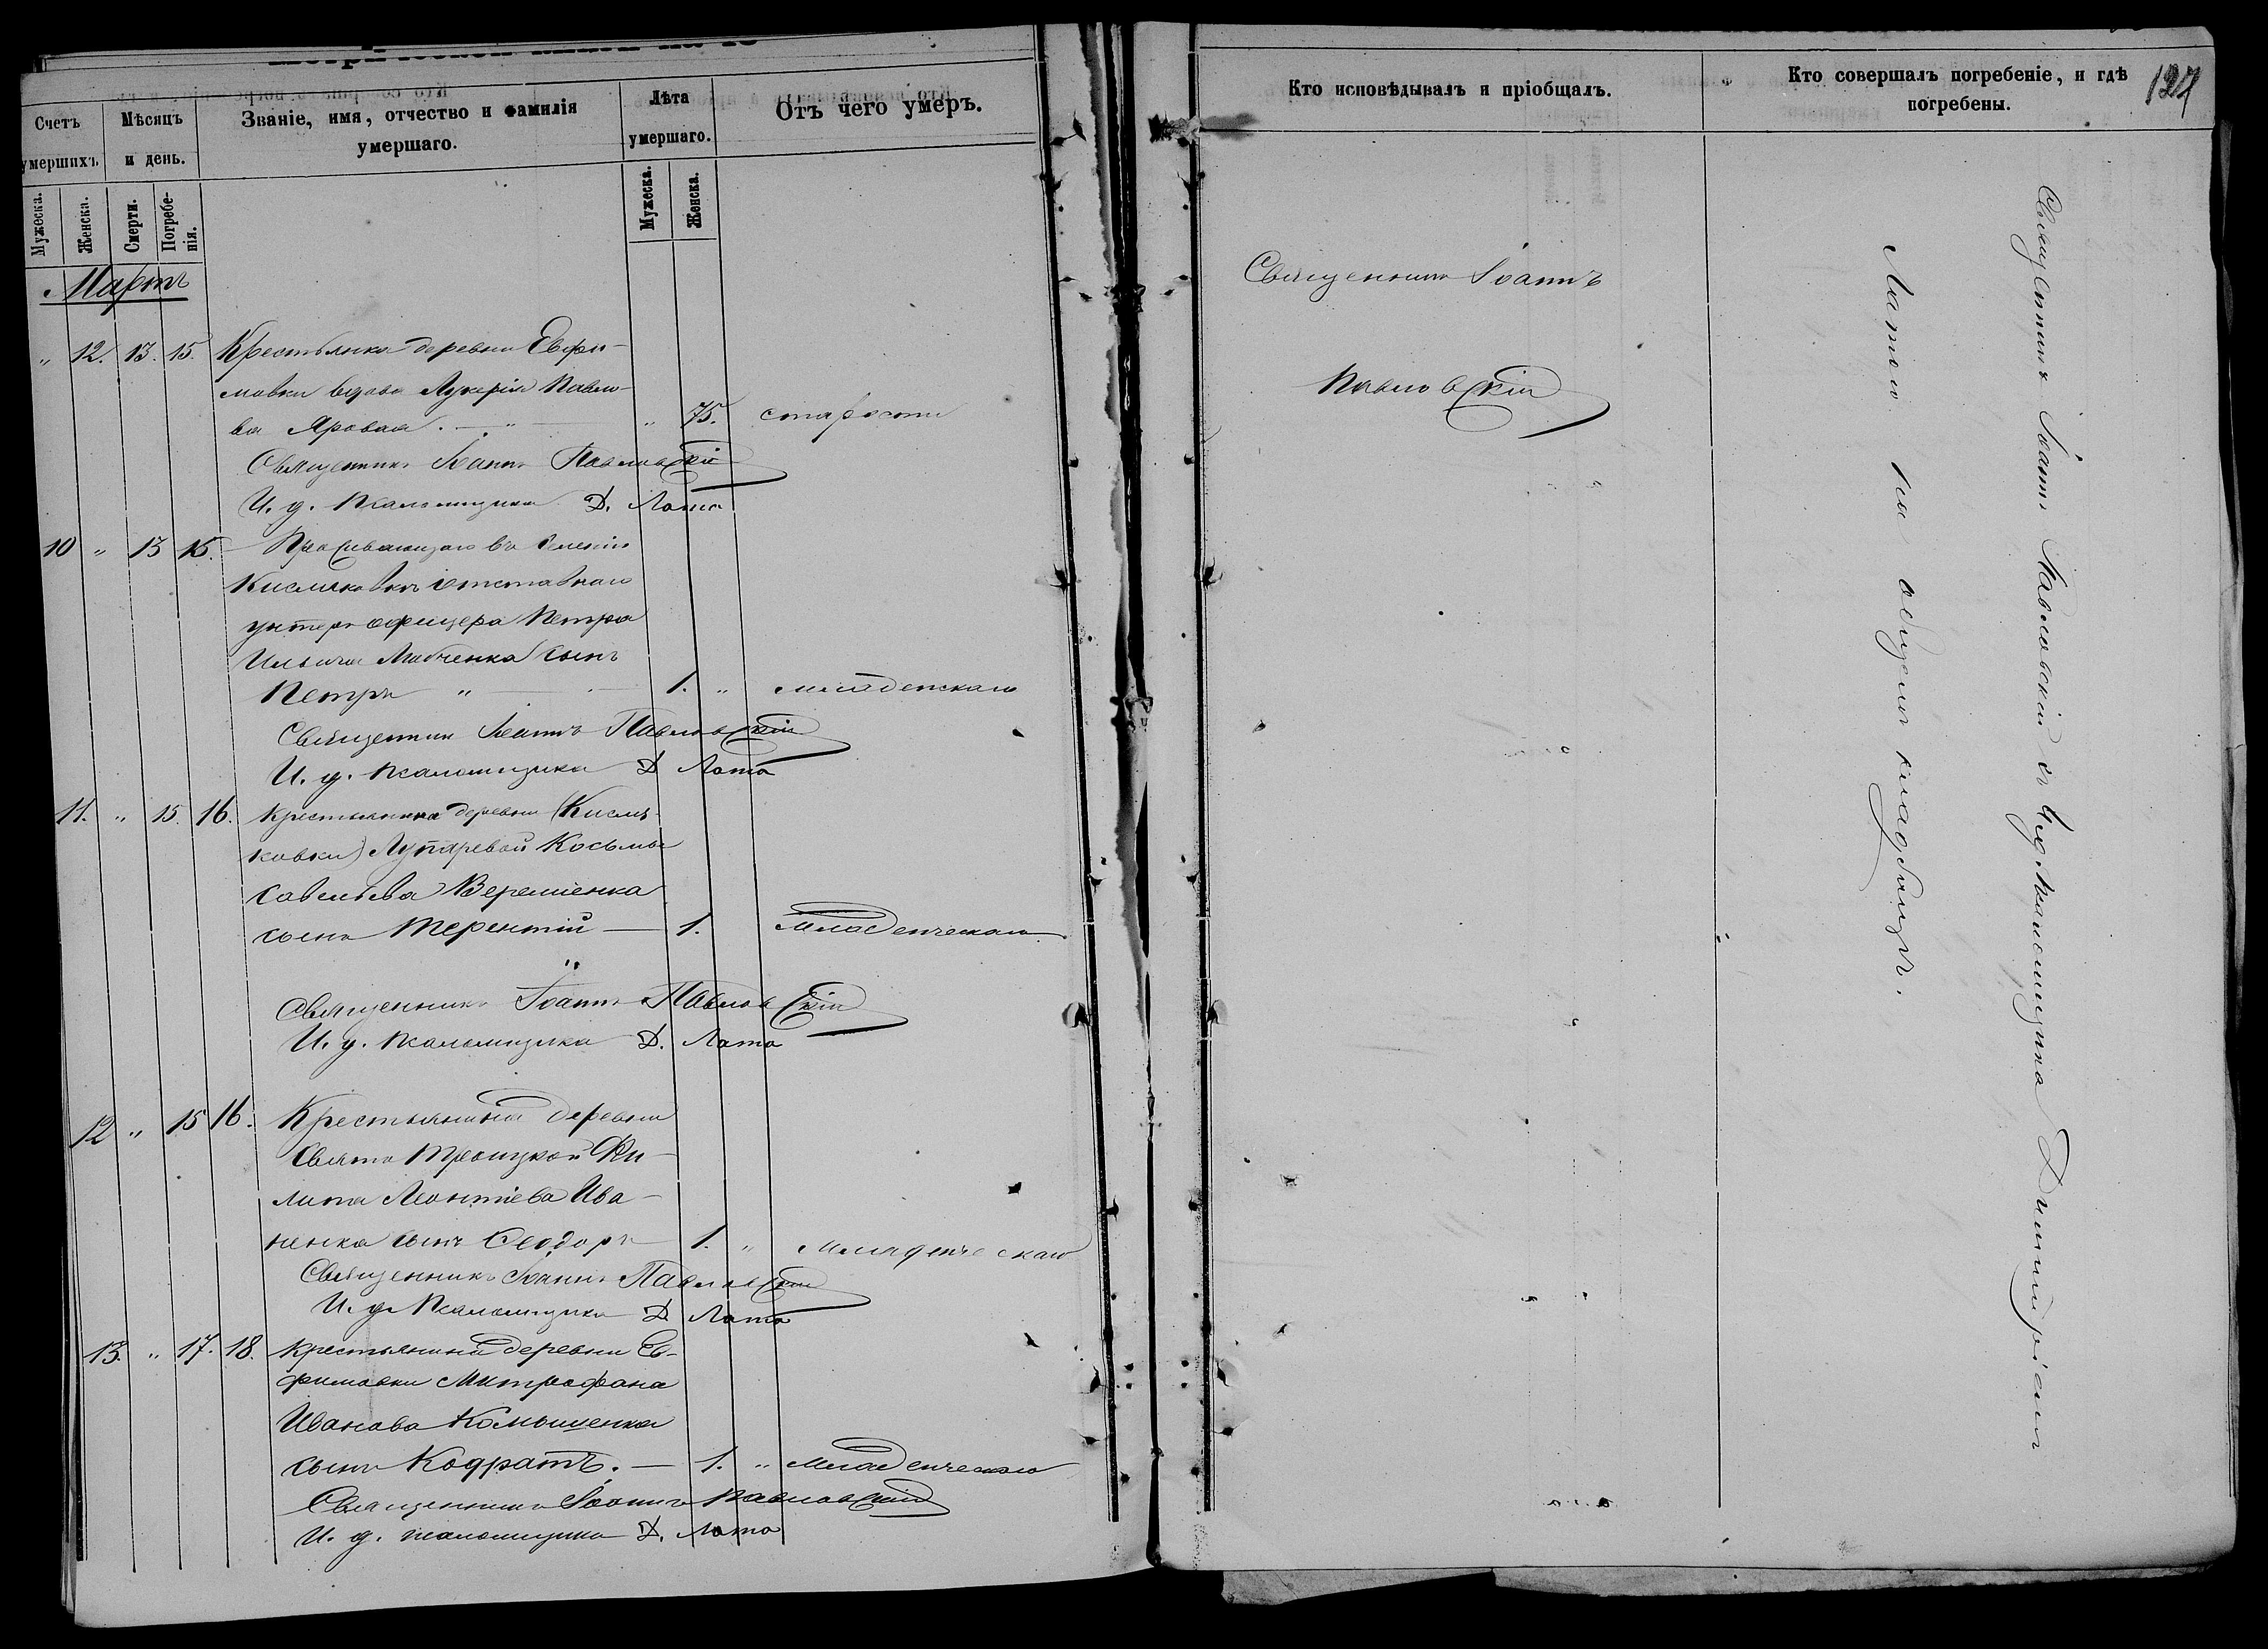 Счетъ умершихъ.
Мѣсяцъ и день.
Званіе, имя, отчество и фамилія умершаго.
Лѣта умершаго.
Отъ чего умеръ.
Мужеска.
Женска.
Смерти.
Погребенія.
Мужеска.
Женска.
Мартъ
„ 12. 13. 15. Крестьянка деревни Евфи-
мовки вдова Лукерія Павло-
ва Яровая. — „ — „ 75. старости
Священникъ Іоаннъ Павловскій
И. д. псаломщика Д. Лата
10 „ 13 15. Проживающаго въ селеніи
Кисляковкѣ отставнаго
унтеръ офицера Петра
Ильича сынъ
Петръ „ — 1. „ младенскаго
Священникъ Іоаннъ Павловскій
И. д. псаломщика Д Лата
11. „ 15. 16. Крестьянина деревни (Кисля-
ковки) Лупаревой Косьмы
Савельева Веремѣенка
сынъ Терентій — 1. Младенческаго
Священникъ Іоаннъ Павловскій
И. д. псаломщика Д. Лата
12 „ 15 16. Крестьянина деревни
Свято Троицкой Фи-
липа Леонтіева Ива-
ненка сынъ Ѳеодоръ 1. „ Младенческаго
Священникъ Іоаннъ Павловскій
И. д. Псаломщика Д Лата
13. „ 17. 18. Крестьянина деревни Ев-
фимовки Митрофана
Иванова Комышенка
сынъ Кодратъ. — 1. „ Младенческаго
Священникъ Іоаннъ Павловскій
И. д. псаломщика Д. Лата
Кто исповѣдывалъ и пріобщалъ.
Кто совершалъ погребеніе, и гдѣ погребены.
127
Священникъ Іоаннъ
Павловскій
Священникъ Іоаннъ Павловскій съ И. д. Псаломщика Димитріемъ
Латою на общемъ кладбищѣ.